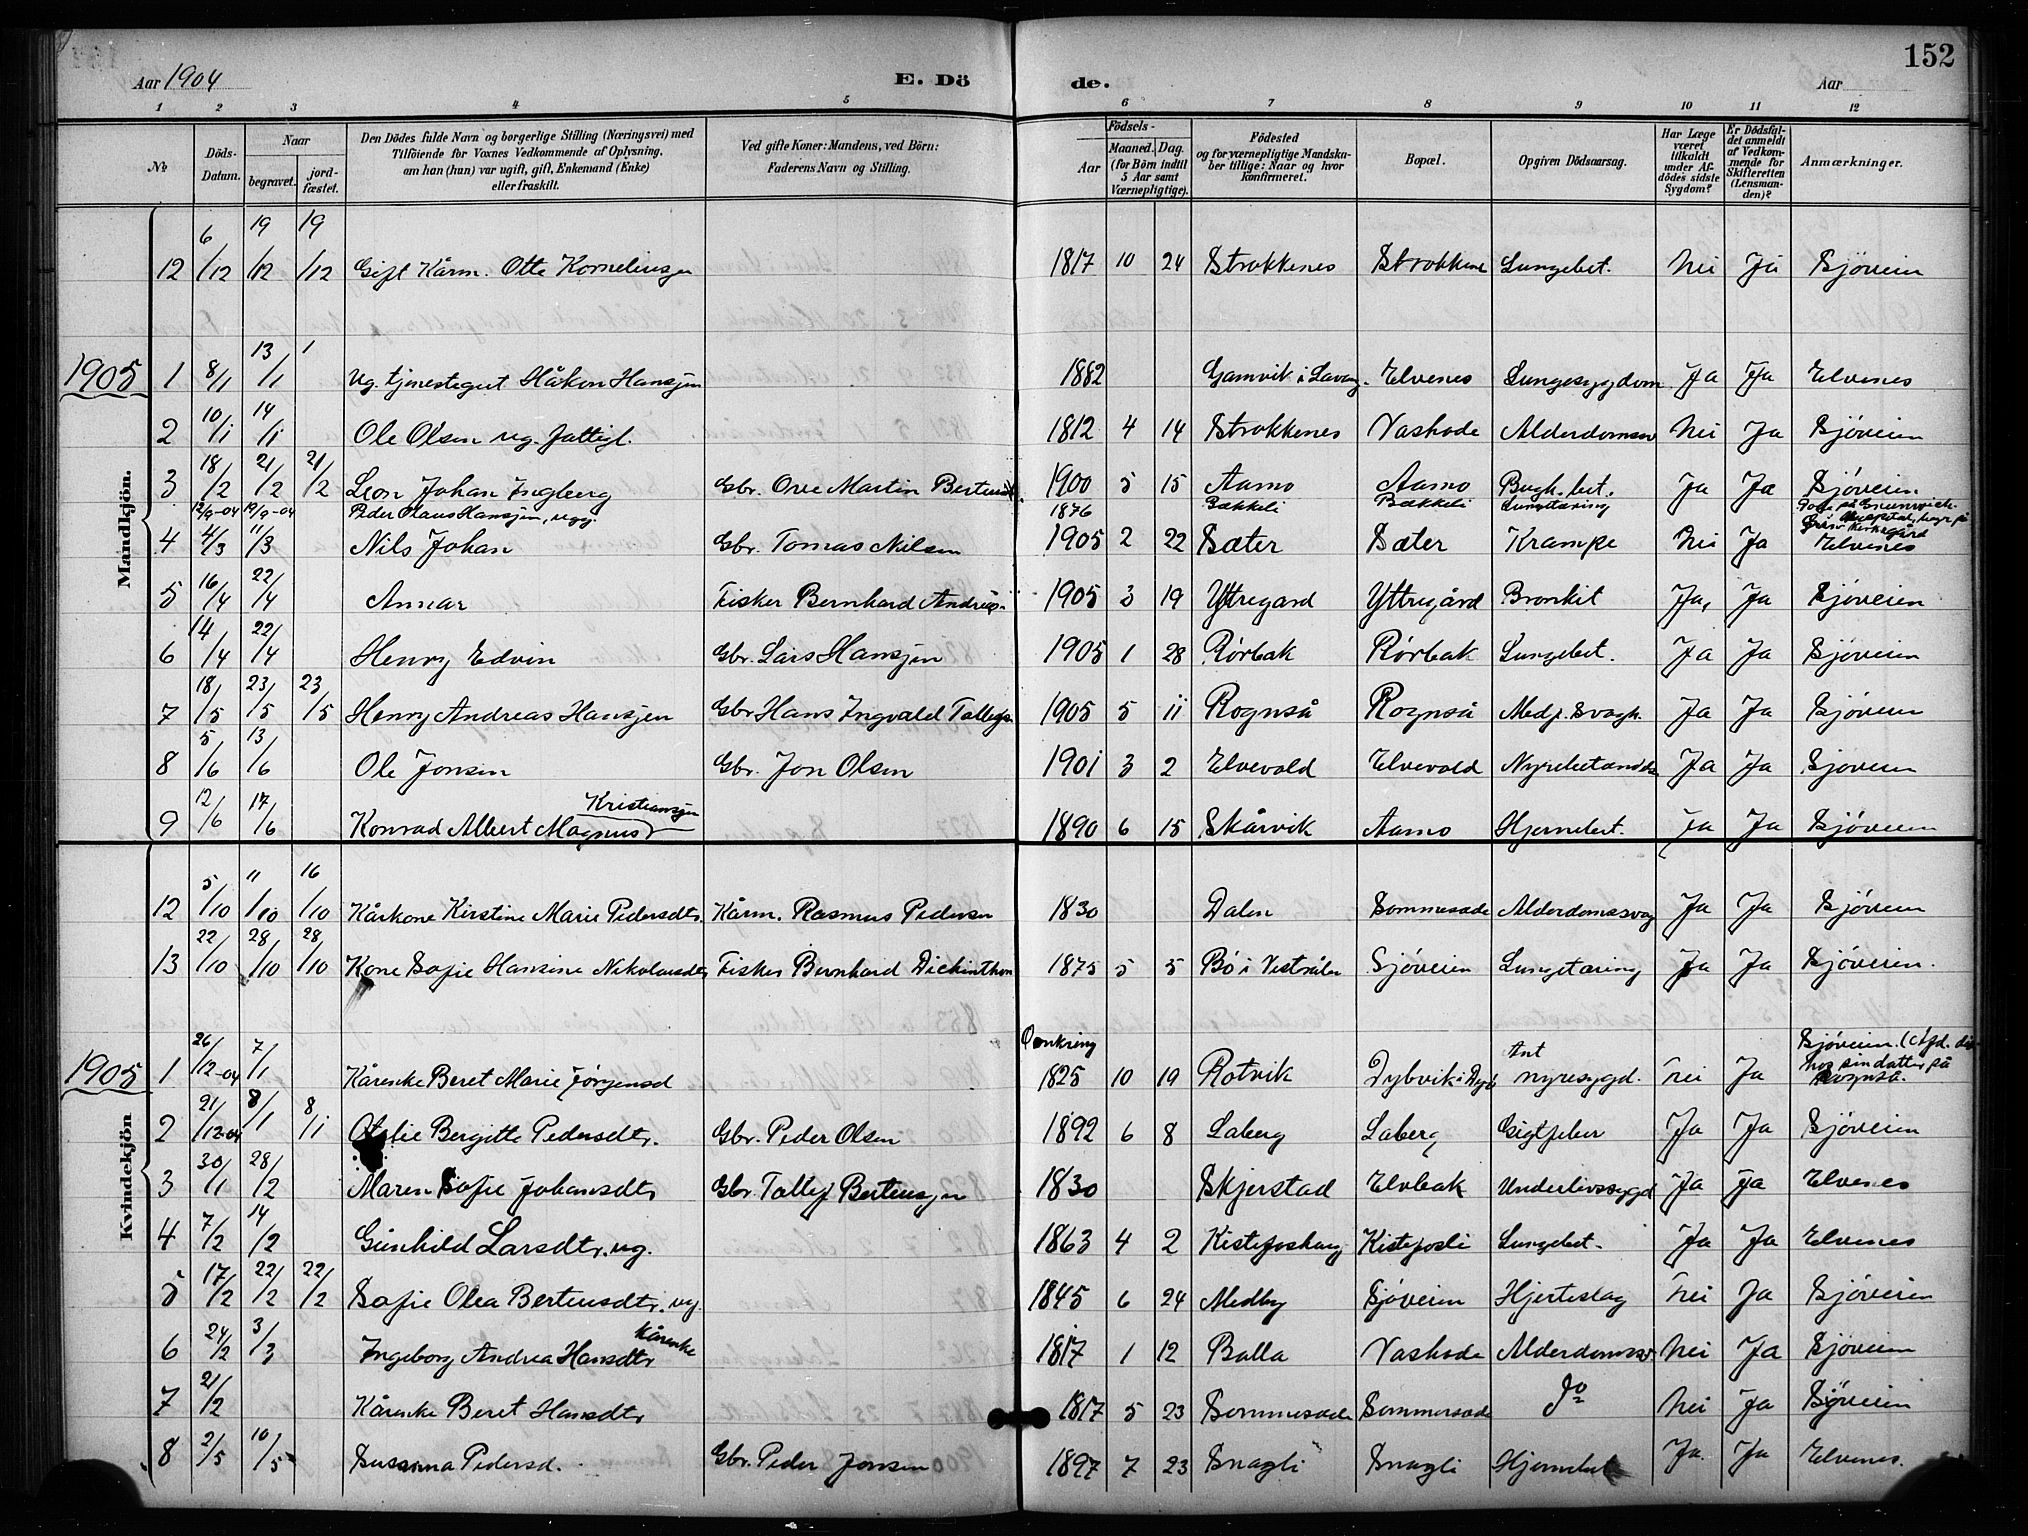 152
Aar 1904 E. Dö de. Aar
1 2 3 4 5 6 7 8 9 10 11 12
No Döds-Datum. Naar begravet. jordfæstet. Den Dödes fulde Navn og borgerlige Stilling (Næringsvei) med Tilföiende for Voxnes Vedkommende af Oplysning, om han (hun) var ugift, gift, Enkemand (Enke) eller fraskilt. Ved gifte Koner: Mandens, ved Börn: Faderens Navn og Stilling. Födsels- Aar Maaned. Dag. (for Börn indtil 5 Aar samt Værnepligtige). Födested og for værnepligtige Mandskaber tillige: Naar og hvor konfirmeret. Bopæl. Opgiven Dödsaarsag. Har Læge været tilkaldt under Afdödes sidste Sygdom? Er Dödsfaldet anmeldt af Vedkommende for Skifteretten (Lensmanden)? Anmærkninger.
Mandkjön.
12 6/12 19/12 19/12 Gift Kårm. Otte Korneliusen 1817 10 24 Strokkenes Strokkene Lungebet. Nei Ja Sjöveien
1905 1 8/1 13/1 1 Ug. tjenestegut Håkon Hansjen 1882 Gamvik i Lavang. Elvenes Lungesygdom Ja Ja Elvenes
2 10/1 14/1 Ole Olsen ug. fattigl. 1812 4 14 Strokkenes Vashode Alderdomssv Nei Ja Sjöveien
3 18/2 21/2 21/2 Leon Johan Ingberg Gbr. Ove Martin Bertens. 1900 5 15 Aamo Aamo Bugh. bet. Ja Ja Sjöveien
12/9-04 19/9-04 Peder Olaus Hansjen, ug. 1876 Bækkeli Bækkeli Lungetæring Döde på Greenwich Hospital, begr. på kirkegård
4 4/3 11/3 Nils Johan Gbr. Tomas Nilsen 1905 2 22 Sæter Sæter Krampe Nei Ja Elvenes
5 16/4 22/4 Annar Fisker Bernhard Andreas. 1905 3 19 Yttregard Yttregård Bronkit Ja, Ja Sjöveien
6 14/4 22/4 Henry Edvin Gbr. Lars Hansjen 1905 1 28 Rörbak Rörbak Lungebet. Ja Ja Sjöveien
7 18/5 23/5 23/5 Henry Andreas Hansjen Gbr Hans Ingvald Tollefs. 1905 5 11 Rognså Rognså Medf. Svagh. Ja Ja Sjöveien
8 5/6 13/6 Ole Jonsen Gbr. Jon Olsen 1901 3 2 Elvevold Elvevold Nyrebetændls Ja Ja Sjöveien
9 12/6 17/6 Konrad Albert Magnus Kristiansjen 1890 6 15 Skårvik Aamo Hjernebet. Ja Ja Sjöveien
Kvindekjön
12 5/10 11/10 16/10 Kårkone Kirstine Marie Pedersdtr. Kårm. Rasmus Pedersen 1830 Dalen Sommesæde Alderdomssvag Ja Ja Sjöveien
13 22/10 28/10 28/10 Kone Sofie Hansine Nikolausdtr Fisker Bernhard Dickinthon 1875 5 5 Bö i Vestrålen Sjöveien Lungetæring Ja Ja Sjöveien.
1905 1 26/12-04 7/1 Kårenke Beret Marie Jörgensd Omkring 1825 10 19 Rotvik Dybvik i Dyrö Ant nyresygd. Nei Ja Sjöveien. (Afd. dö hos sin datter på Rognså.
2 21/12-04 8/1 8/1 Otelie Bergitte Pedersdtr. Gbr. Peder Olsen 1892 6 8 Laberg Laberg Gigtfeber Ja Ja Sjöveien
3 30/1 28/2 Maren Sofie Johansdtr Gbr. Tollef Bertensjen 1830 Skjerstad Elvbak Underlivssygd Ja Ja Elvenes
4 7/2 14/2 Gunhild Larsdtr. ug. 1863 4 2 Kistefoshaug Kistefosli Lungebet. Ja Ja Elvenes
5 17/2 22/2 22/2 Sofie Olea Bertensdtr. ug. 1845 6 24 Medby Sjöveien Hjerteslag Nei Ja Sjöveien
6 24/2 3/3 Ingeborg Andrea Hansdtr Kårenke 1817 1 12 Balla Vashode Alderdomssv Nei Ja Sjöveien
7 21/2 Kårenke Beret Hansdtr 1817 5 23 Sommesæde Sommersæde do Nei Ja Sjöveien
8 2/5 10/5 Sussnna Pedersd. Gbr. Peder Jonsen 1897 7 23 Snagli Snagli Hjernebet Ja. Ja Elvenes.